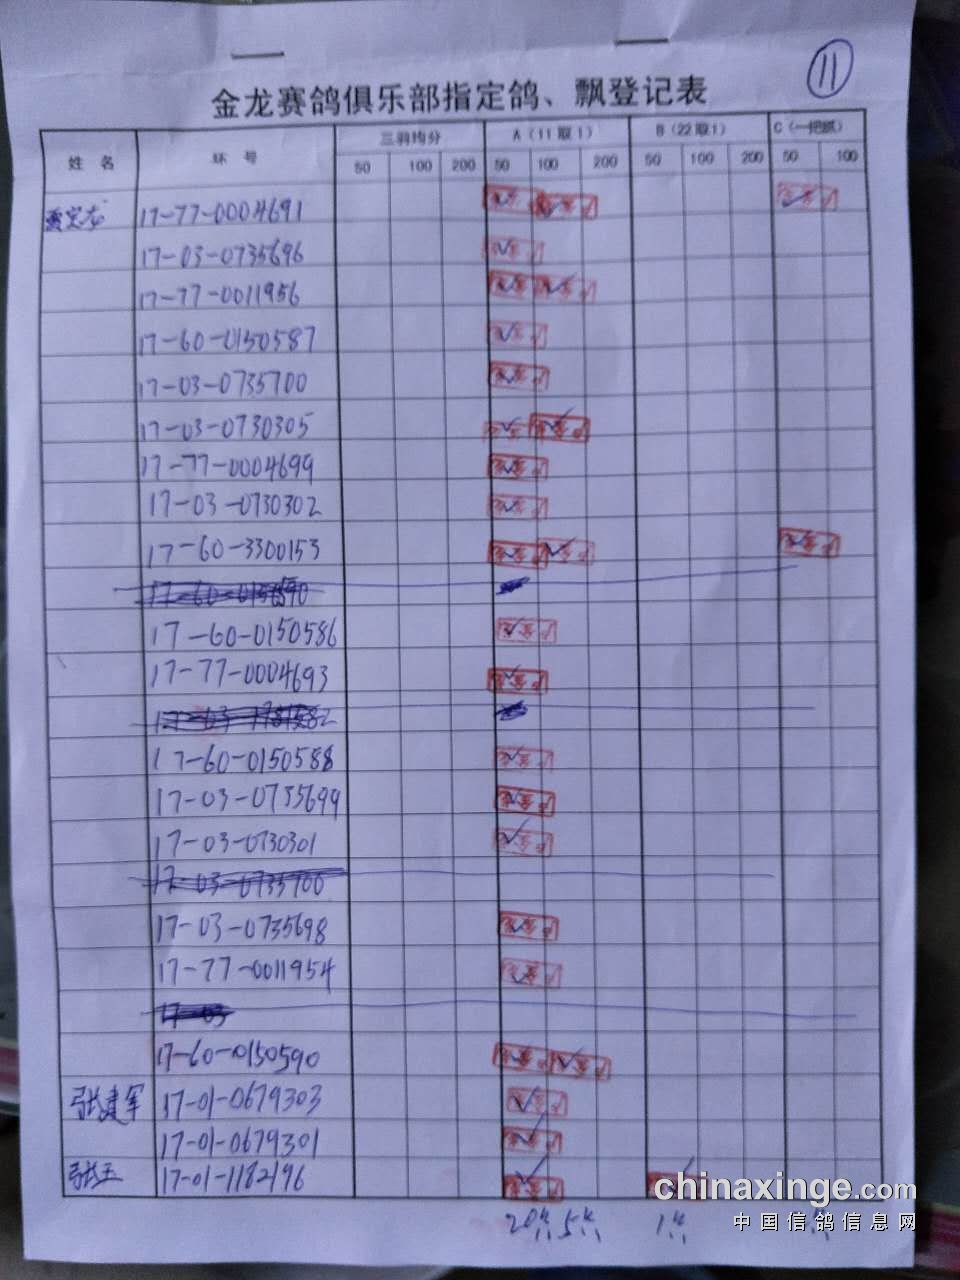 11
金龙赛鸽俱乐部指定鸽、飘登记表
姓 名 环 号 三羽均分 A（11取1） B（22取1） C（一把抓）
50 100 200 50 100 200 50 100 200 50 100
17-77-0004691
17-03-0735696
17-77-0011956
17-60-0150587
17-03-0735700
17-03-0730305
17-77-0004699
17-03-0730302
17-60-3300153
17-60-0150586
17-77-0004693
17-60-0150588
17-03-0735699
17-03-0730301
17-03-0735700
17-03-0735698
17-77-0011954
17-03
17-60-0150590
张建军 17-01-0679303
17-01-0679301
张玉 17-01-1182196
chinaxinge.com
中国信鸽信息网